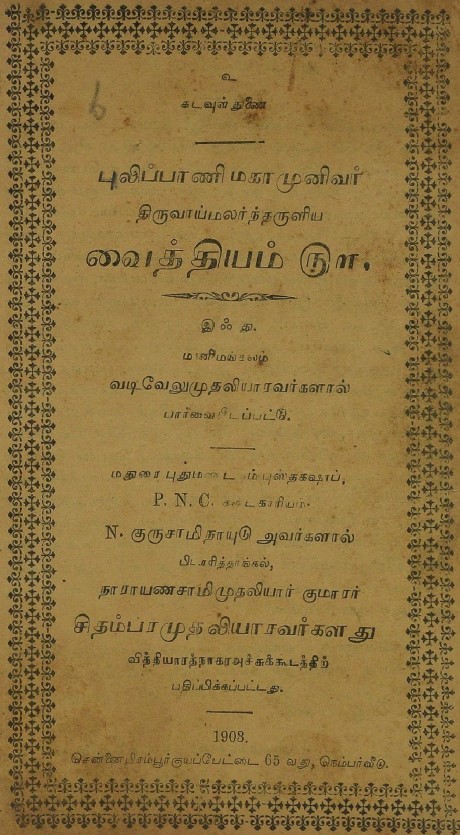 உ
கடவுள் துணை
புலிப்பாணி மகா முனிவர்
திருவாய்மலர்ந்தருளிய
வைத்தியம் ௫௱.
இஃது.
மணிமங்கலம்
வடிவேலுமுதலியாரவர்களால்
பார்வையிடப்பட்டு.
மதுரை புதுமண்டபம் புஸ்தகஷாப்,
P. N. C. கடைகாரியம்.
N. குருசாமிநாயுடு அவர்களால்
நாராயணசாமிமுதலியார் குமாரர்
சிதம்பரமுதலியாரவர்களது
வித்தியாரத்நாகரஅச்சுக்கூடத்திற்
பதிப்பிக்கப்பட்டது.
1903.
சென்னைபிரம்பூர்குயப்பேட்டை 65 வது, நெம்பர்வீடு.